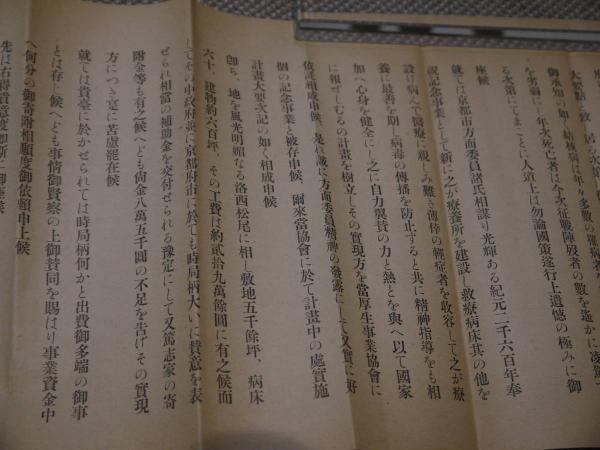 大要點
御承知の如く結核病は年々多數の罹病者
を劣弱にし年次死亡者は今次征戰陣歿者の數を遙かに凌駕
る次第にてまことに人道上は勿論國策遂行上遺憾の極みに御
座候
就ては京都市方面委員諸氏相謀り光輝ある紀元二千六百年奉
祝記念事業として新に之が療養所を建設し救療病床其の他を
設け病んで醫療に親しみ難き薄倖の輕症者を收容して之が療
養に最善を期し病毒の傳播を防止すると共に精神指導をも相
加へ心身を健全にし之に自力翼贊の力と熱とを與へ以て國家
に報ぜしむるの計畫を樹立しその實現方を當厚生事業協會に
依託相成申候、是れ誠に方面委員精神の發露にして又實に好
個の記念事業と被存申候、爾來當協會に於て計畫中の處實施
計畫大要次記の如く相成申候
卽ち、地を風光明媚なる洛西松尾に相し敷地五千餘坪、病床
六十、建物約六百坪、その工費は約貳拾九萬餘圓に有之候而
してその中政府並に京都府市に於ても時局柄大いに贊意を表
せられ相當の補助金を交付せられる豫定にして又篤志家の寄
附金等も有之候へども尙金八萬五千圓の不足を吿げその實現
方につき寔に苦慮罷在候
就ては貴臺に於かせられては時局柄何かと出費御多端の御事
とは存じ候へども事情御賢察の上御贊同を賜はり事業資金中
へ何分の御寄附相願度御依賴申上候
先は右得貴意度如斯に御座候